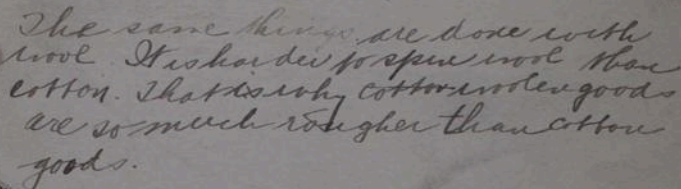 The same things are done with
wool. It is harder to spin wool than
cotton. That is why cotton woolen goods
are so much rougher than cotton
goods.